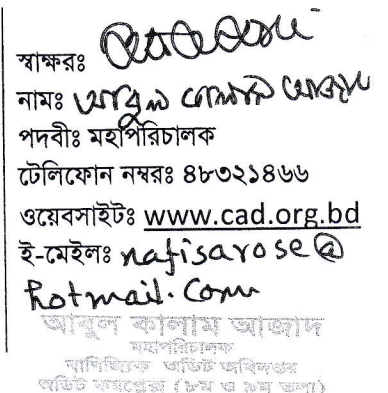 স্বাক্ষরঃ
নামঃ আবুল কালাম আজাদ
পদবীঃ মহাপরিচালক
টেলিফোন নম্বরঃ ৪৮৩২১৪৬৬
ওয়েবসাইটঃ www.cad.org.bd
ই-মেইলঃ nafisarose@
hotmail.com
আবুল কালাম আজাদ
মহাপরিচালক
বাণিজ্যিক অডিট অধিদপ্তর
অডিট কমপ্লেক্স (৮ম ও ৯ম তলা)